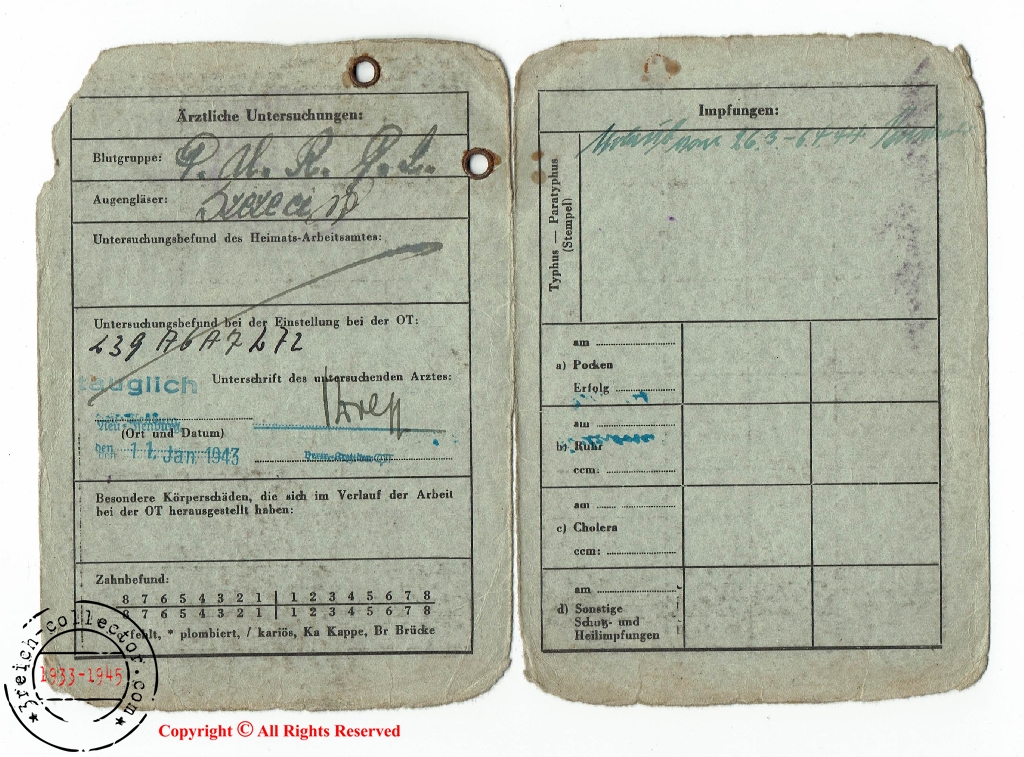 Ärztliche Untersuchungen:
Blutgruppe:
Augengläser:
Untersuchungsbefund des Heimats-Arbeitsamtes:
Untersuchungsbefund bei der Einstellung bei der OT:
L39 A6 A7 L72
tauglich
Unterschrift des untersuchenden Arztes:
Neu-Isenburg
(Ort und Datum)
den 11. Jan. 1943
Besondere Körperschäden, die sich im Verlauf der Arbeit
bei der OT herausgestellt haben:
Zahnbefund:
8 7 6 5 4 3 2 1 | 1 2 3 4 5 6 7 8
8 7 6 5 4 3 2 1 | 1 2 3 4 5 6 7 8
fehlt, * plombiert, / kariös, Ka Kappe, Br Brücke
Impfungen:
26.3 – 6.4.44
Typhus — Paratyphus
(Stempel)
am
a) Pocken
Erfolg
am
b) Ruhr
ccm:
am
c) Cholera
ccm:
am
d) Sonstige
Schutz- und
Heilimpfungen
3reich-collector.com
1933-1945
Copyright © All Rights Reserved